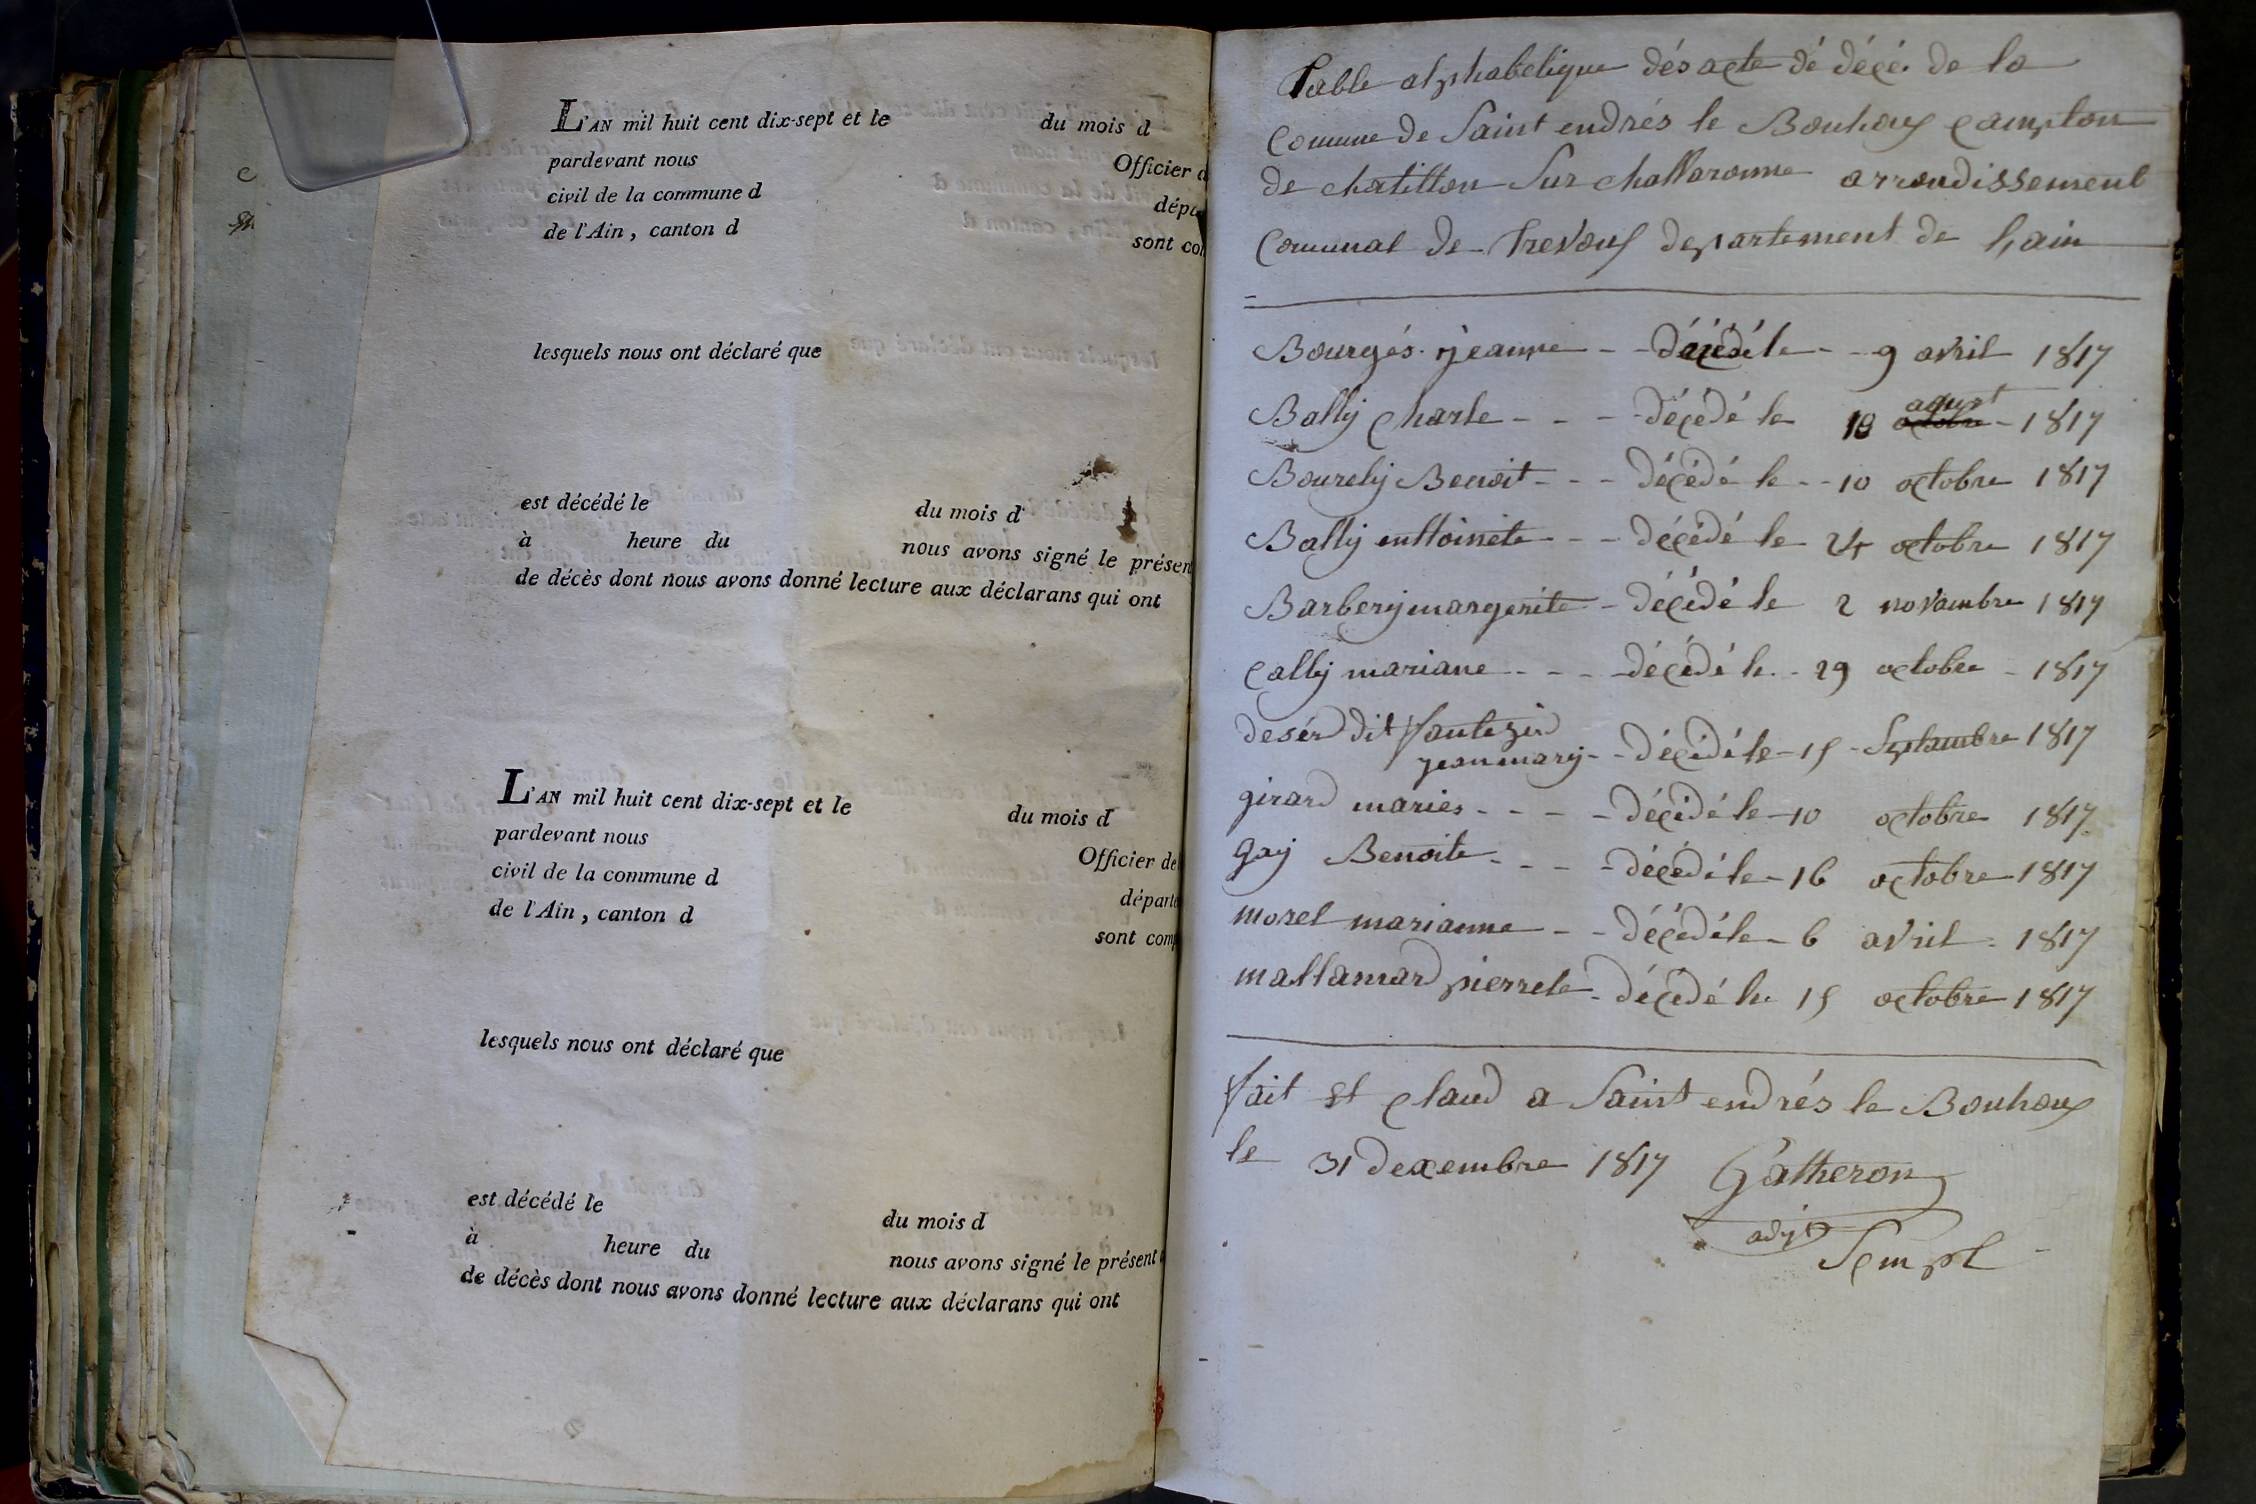 L'AN mil huit cent dix-sept et le du mois d
pardevant nous Officier d
civil de la commune d dépa
de l'Ain, canton d sont co
lesquels nous ont déclaré que
est décédé le du mois d
à heure du nous avons signé le présen
de décès dont nous avons donné lecture aux déclarans qui ont
L'AN mil huit cent dix-sept et le du mois d
pardevant nous Officier de
civil de la commune d départe
de l'Ain, canton d sont comp
lesquels nous ont déclaré que
est décédé le du mois d
à heure du nous avons signé le présent
de décès dont nous avons donné lecture aux déclarans qui ont
Table alphabetique dés acte dé décé. de la
Comune de Saint endrés le Bouhoux campton
de chatillon Sur challaronne arrondissement
Comunal de trevoux departement de lain
Bourgés jeanne - - décédé le - - 9 avril 1817
Bally Charle - - - décédé le 18 octobre août - 1817
Bourely Benoit - - - décédé le - - 10 octobre 1817
Bally enttoinete - - - décédé le 24 octobre 1817
Barbery margerite - décédé le 2 novambre 1817
Cally mariane - - - - décédé le - 29 octobre - 1817
desér dit
jeanmary - - décédé le - 15 - Septambre 1817
girard maries - - - - décédé le - 10 octobre 1817
gay Benoite - - - - décédé le - 16 octobre - 1817
morel marianne - - décédé le - 6 avril - 1817
mallamard pierrete - décédé le 15 octobre 1817
fait et claud a Saint endrés le Bouhoux
le 31 dexembre 1817 Gatheron
adjt